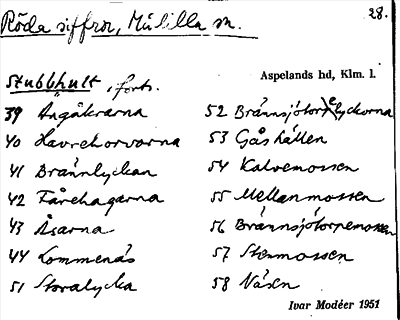 28.
Röda siffror, Målilla sn.
Aspelands hd, Klm. l.
Stubbhult, forts.
39 Ängåkrarna
40 Havrehorvorna
41 Brännlyckan
42 Fårehagarna
43 Åsarna
44 Lommenäs
51 Storalycka
52 Brännsjötorpelyckorna
53 Gåshällen
54 Kalvemossen
55 Mellanmossen
56 Brännsjötorpemossen
57 Stenmossen
58 Näsen
Ivar Modéer 1951